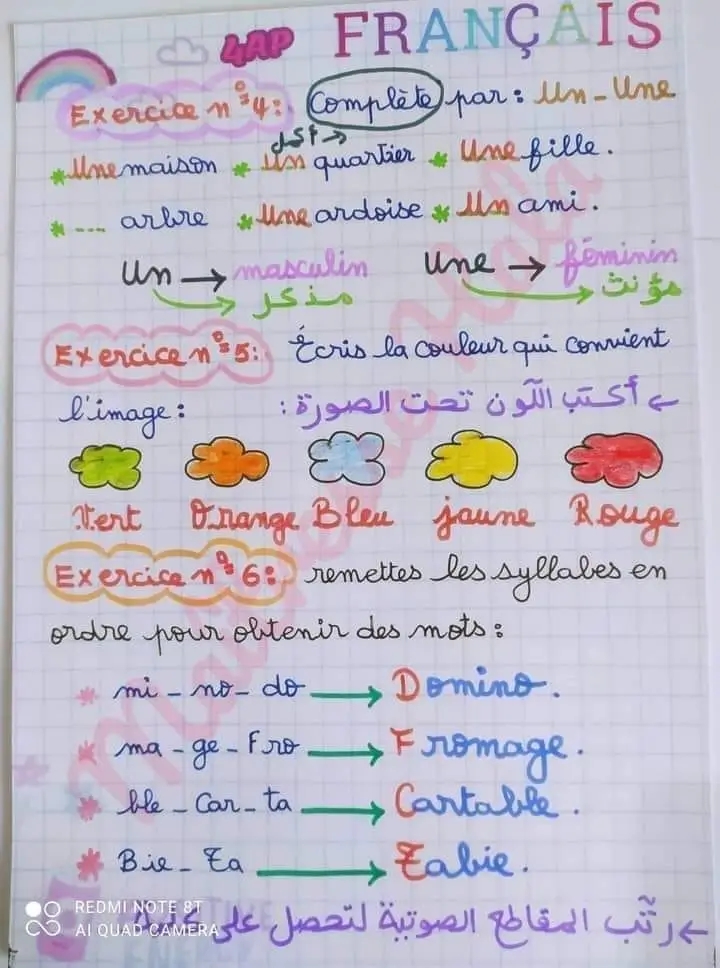 4AP FRANÇAIS
Exercice n°4: Complète par: Un - Une
أكمل
*Une maison * Un quartier * Une fille.
* .... arbre * Une ardoise * Un ami.
Un → masculin Une → féminin
مذكر مؤنث
Exercice n°5: Écris la couleur qui convient
l'image: ← أكتب اللون تحت الصورة:
Vert Orange Bleu jaune Rouge
Exercice n°6: remettes les syllabes en
ordre pour obtenir des mots:
* mi - no - do → Domino.
* ma - ge - Fro → Fromage.
* ble - Car - ta → Cartable.
* Bie - Za → Zabie.
← رتّب المقاطع الصوتية لتحصل على
REDMI NOTE 8T
AI QUAD CAMERA